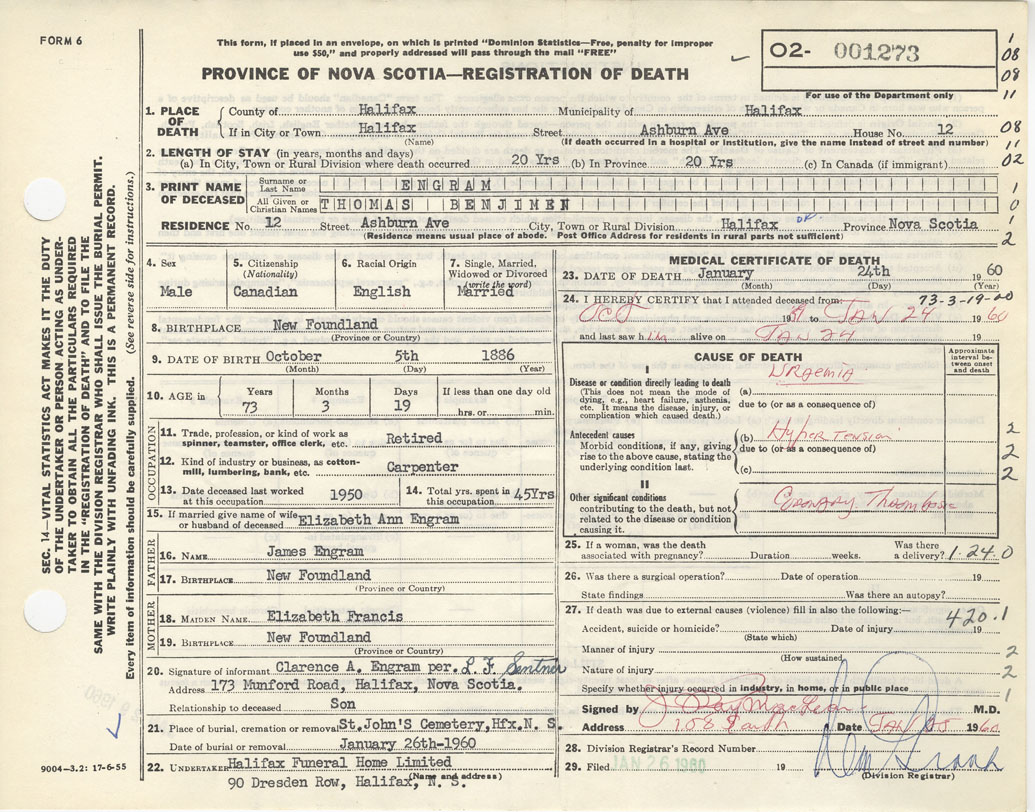 FORM 6
This form, if placed in an envelope, on which is printed "Dominion Statistics—Free, penalty for improper
use $50," and properly addressed will pass through the mail "FREE"
PROVINCE OF NOVA SCOTIA—REGISTRATION OF DEATH
02- 001273
For use of the Department only
1
08
08
11
08
11
02
1
0
1
2
1. PLACE OF DEATH
County of Halifax Municipality of Halifax
If in City or Town Halifax Street Ashburn Ave House No. 12
(Name) (If death occurred in a hospital or institution, give the name instead of street and number)
2. LENGTH OF STAY (in years, months and days)
(a) In City, Town or Rural Division where death occurred 20 Yrs (b) In Province 20 Yrs (c) In Canada (if immigrant)
3. PRINT NAME OF DECEASED
Surname or Last Name ENGRAM
All Given or Christian Names THOMAS BENJIMEN
RESIDENCE No. 12 Street Ashburn Ave City, Town or Rural Division Halifax Province Nova Scotia
(Residence means usual place of abode. Post Office Address for residents in rural parts not sufficient)
SEC. 14—VITAL STATISTICS ACT MAKES IT THE DUTY
OF THE UNDERTAKER OR PERSON ACTING AS UNDER-
TAKER TO OBTAIN ALL THE PARTICULARS REQUIRED
IN THE "REGISTRATION OF DEATH" AND TO FILE THE
SAME WITH THE DIVISION REGISTRAR WHO SHALL ISSUE THE BURIAL PERMIT.
WRITE PLAINLY WITH UNFADING INK. THIS IS A PERMANENT RECORD.
Every item of information should be carefully supplied. (See reverse side for instructions.)
4. Sex
Male
5. Citizenship
(Nationality)
Canadian
6. Racial Origin
English
7. Single, Married,
Widowed or Divorced
(write the word)
Married
8. BIRTHPLACE New Foundland
(Province or Country)
9. DATE OF BIRTH October 5th 1886
(Month) (Day) (Year)
10. AGE in
Years 73
Months 3
Days 19
If less than one day old
hrs. or min.
OCCUPATION
11. Trade, profession, or kind of work as
spinner, teamster, office clerk, etc. Retired
12. Kind of industry or business, as cotton-
mill, lumbering, bank, etc. Carpenter
13. Date deceased last worked
at this occupation 1950
14. Total yrs. spent in
this occupation 45Yrs
15. If married give name of wife
or husband of deceased Elizabeth Ann Engram
FATHER
16. NAME James Engram
17. BIRTHPLACE New Foundland
(Province or Country)
MOTHER
18. MAIDEN NAME Elizabeth Francis
19. BIRTHPLACE New Foundland
(Province or Country)
20. Signature of informant Clarence A. Engram per. L. F. Sentner
Address 173 Munford Road, Halifax, Nova Scotia.
Relationship to deceased Son
21. Place of burial, cremation or removal St.John'S Cemetery,Hfx.N. S.
Date of burial or removal January 26th-1960
22. UNDERTAKER Halifax Funeral Home Limited
(Name and address)
90 Dresden Row, Halifax, N. S.
9004-3.2: 17-6-55
MEDICAL CERTIFICATE OF DEATH
23. DATE OF DEATH January 24th 1960
(Month) (Day) (Year)
73-3-19-00
24. I HEREBY CERTIFY that I attended deceased from:
Oct 19 to JAN 24 1960
and last saw h im alive on JAN 24 19
CAUSE OF DEATH
Approximate
interval be-
tween onset
and death
I
Disease or condition directly leading to death
(This does not mean the mode of
dying, e.g., heart failure, asthenia,
etc. It means the disease, injury, or
complication which caused death.)
URAEMIA
(a)
due to (or as a consequence of)
Antecedent causes
Morbid conditions, if any, giving
rise to the above cause, stating the
underlying condition last.
(b) Hyper Tension
due to (or as a consequence of)
(c)
2
2
2
II
Other significant conditions
contributing to the death, but not
related to the disease or condition
causing it.
Coronary Thrombosis
25. If a woman, was the death
associated with pregnancy? Duration weeks. Was there
a delivery?
1·24·0
26. Was there a surgical operation? Date of operation 19
State findings Was there an autopsy?
27. If death was due to external causes (violence) fill in also the following:—
420.1
Accident, suicide or homicide? Date of injury 19
(State which)
Manner of injury 2
(How sustained
Nature of injury 2
Specify whether injury occurred in industry, in home, or in public place 1
Signed by M.D.
Address 108 South Date JAN 25 1960
28. Division Registrar's Record Number
29. Filed JAN 26 1960 19
(Division Registrar)